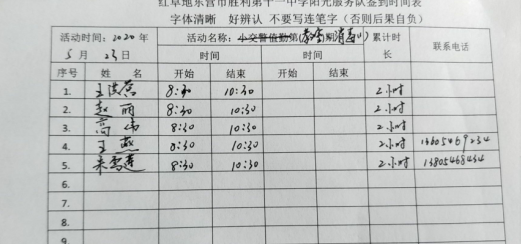 红草地东营市胜利第十一中学阳光服务队签到时间表
字体清晰 好辨认 不要写连笔字（否则后果自负）
活动时间：2020年5月23日 活动名称：小交警值勤第( 累计时长 联系电话
时间 时间
序号 姓名 开始 结束 开始 结束
1. 8:30 10:30 2小时
2. 赵丽 8:30 10:30 2小时
3. 高伟 8:30 10:30 2小时
4. 王燕 8:30 10:30 2小时
5. 8:30 10:30 2小时 13805468434
6.
7.
8.
9.